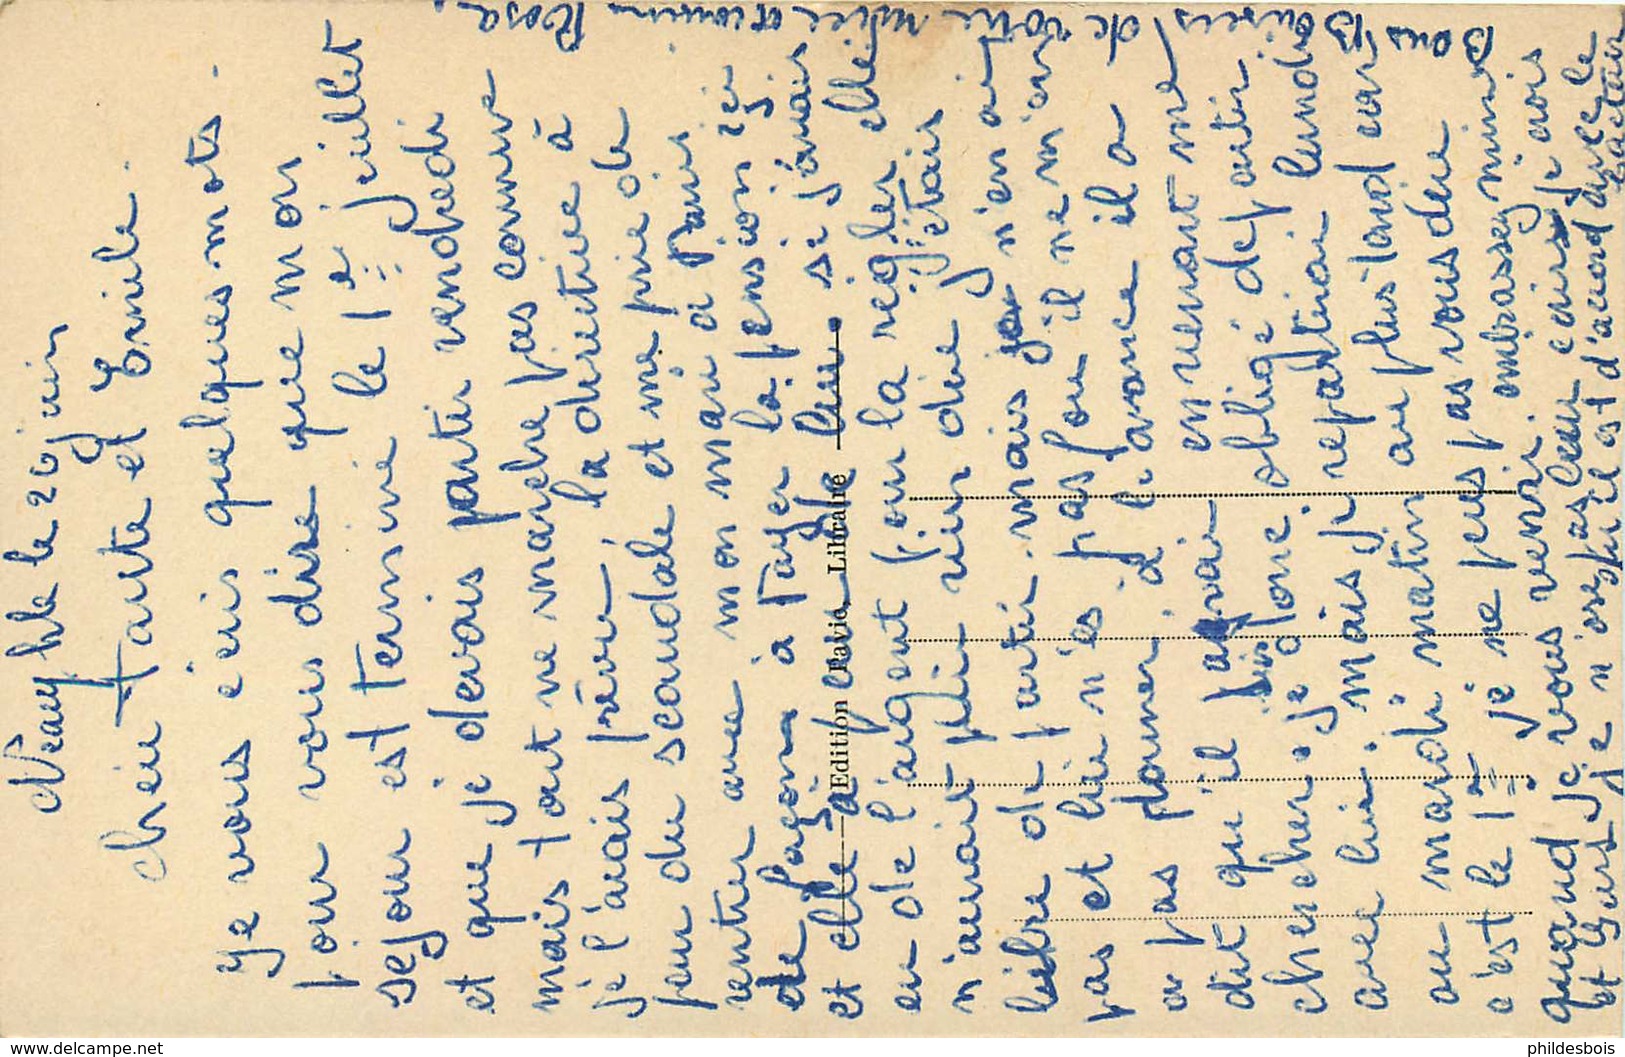 Neauphle le 26 juin
Chère Tante et Emile.
Je vous écris quelques mots
pour vous dire que mon
séjour est terminé le 1er juillet
et que je devais partir vendredi
mais tout ne marche pas comme
je l'avais prévu! la directrice à
peur du scandale et me prie de
rentrer avec mon mari à Paris
de façon à Payer la pension ici
et elle a eu de si jamais
eu de l'argent pour la régler elle
n'aurait plus rien dire j'étais
libre de partir. mais je n'en ai
pas et lui n'est pas fou il ne m'en
a pas donner, d'avance il a
dit qu'il payerais en venant me
chercher. je suis donc obligé de partir
avec lui. mais je repartirai lundi
ou mardi matin au plus tard car
c'est le 1er je ne peus pas vous dire
quand je vous verrai. embrassez mimi
et Je vous
Je n'ose pas il est d'accord avec le
facteur
Bons Baisers de votre nièce et cousine Rosa.
Edition David, Libraire
www.delcampe.net
phildesbois